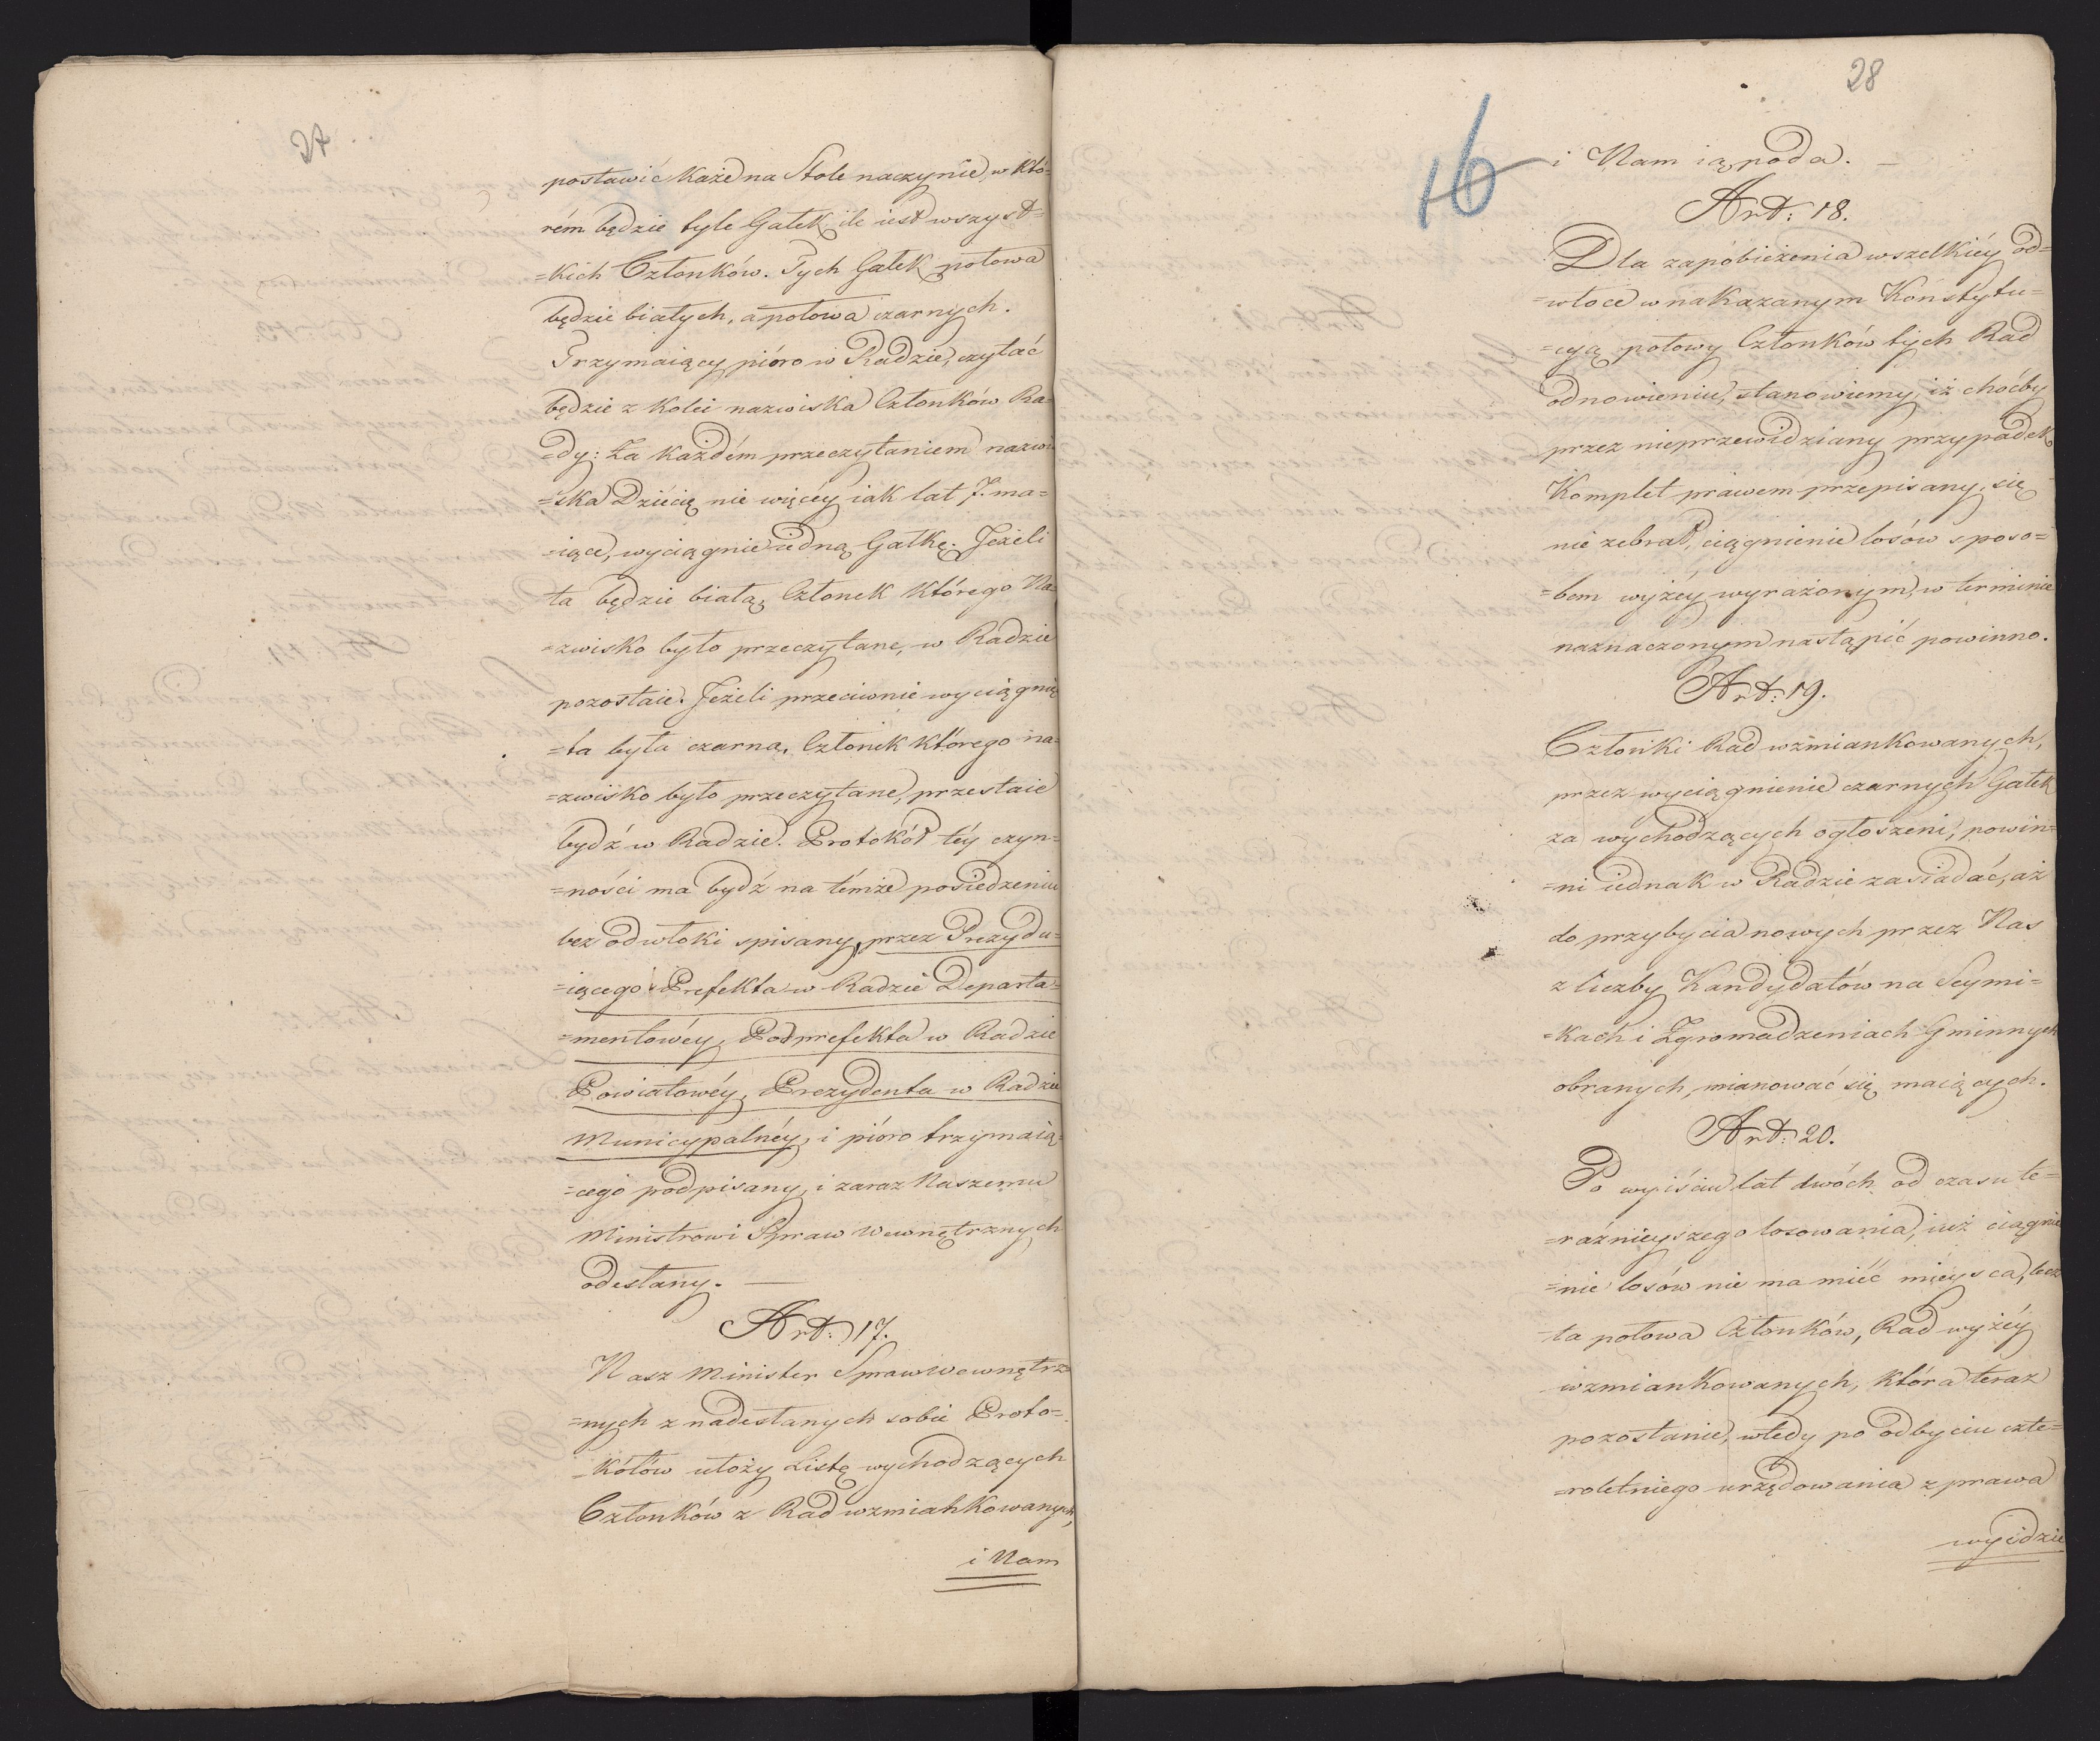 27
postawić każe na Stole naczynie, w któ=
rém będzie tyle Gałek ile iest wszyst=
=kich Członków. Tych Gałek połowa
będzie białych, a połowa czarnych.
Trzymaiący pióro w Radzie, czytać
będzie z kolei nazwiska Członków Ra=
=dy: Za każdém przeczytaniem nazwi
=ska Dziécię nie więcéy iak lat 7. ma=
=iące, wyciągnie iedną Gałkę. Jeżeli
ta będzie biała, Członek którego Na=
=zwisko było przeczytane, w Radzie
pozostaie. Jeżeli przeciwnie wyciągnię
=ta była czarna, Członek którego na=
=zwisko było przeczytane, przestaie
bydź w Radzie. Protokół téy czyn=
=ności ma bydź na témże posiedzeniu
bez odwłoki spisany, przez Prezydu=
=iącego Prefekta w Radzie Departa=
=mentowéy, Podprefekta w Radzie
Powiatowéy, Prezydenta w Radzie
Municypalnéy, i pióro trzymaią=
=cego podpisany, i zaraz Naszemu
Ministrowi Spraw Wewnętrznych
odesłany. —
Art: 17.
Nasz Minister Spraw Wewnętrz
=nych z nadesłanych sobie Proto=
=kółów ułoży Listę wychodzących
Członków z Rad wzmiankowanych,
i Nam
28
16
i Nam ią poda. —
Art: 18.
Dla zapobieżenia wszelkiéy od=
=włoce w nakazanym Konstytu=
=cyą połowy Członków tych Rad
odnowieniu, stanowiemy, iż choćby
przez nieprzewidziany przypadek
Komplet prawem przepisany, się
nie zebrał, ciągnienie losów sposo=
=bem wyżéy wyrażonym, w terminie
naznaczonym nastąpić powinno.
Art: 19.
Członki Rad wzmiankowanych,
przez wyciągnienie czarnych Gałek
za wychodzących ogłoszeni, powin=
=ni iednak w Radzie zasiadać, aż
do przybycia nowych przez Nas
z liczby Kandydatów na Seymi=
=kach i Zgromadzeniach Gminnych
obranych, mianować się maiących.
Art: 20.
Po wyiściu lat dwóch od czasu te=
=raźnieyszego losowania, iuż ciągnie
=nie losów nie ma miéć miéysca, lecz
ta połowa Członków, Rad wyżéy
wzmiankowanych, która teraz
pozostanie, wtedy po odbyciu czte=
=roletniego urzędowania z prawa
wyidzie